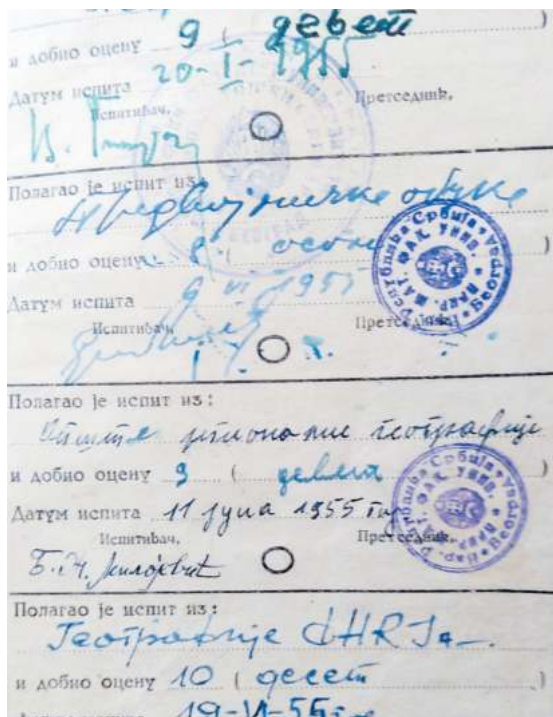 и добио оцену 9 ( девет )
Датум испита 20-I-1955
Испитивач, Претседник,
Полагао је испит из:
Предвојничке обуке
и добио оцену 8 ( осам )
Датум испита 9 VI 1955
Испитивач, Претседник,
Полагао је испит из:
Опште регионалне географије
и добио оцену 9 ( девет )
Датум испита 11 јуна 1955 год
Испитивач, Претседник,
Б. Ж. Милојевић
Полагао је испит из:
Географије ФНРЈ
и добио оцену 10 ( десет
19-VI-55